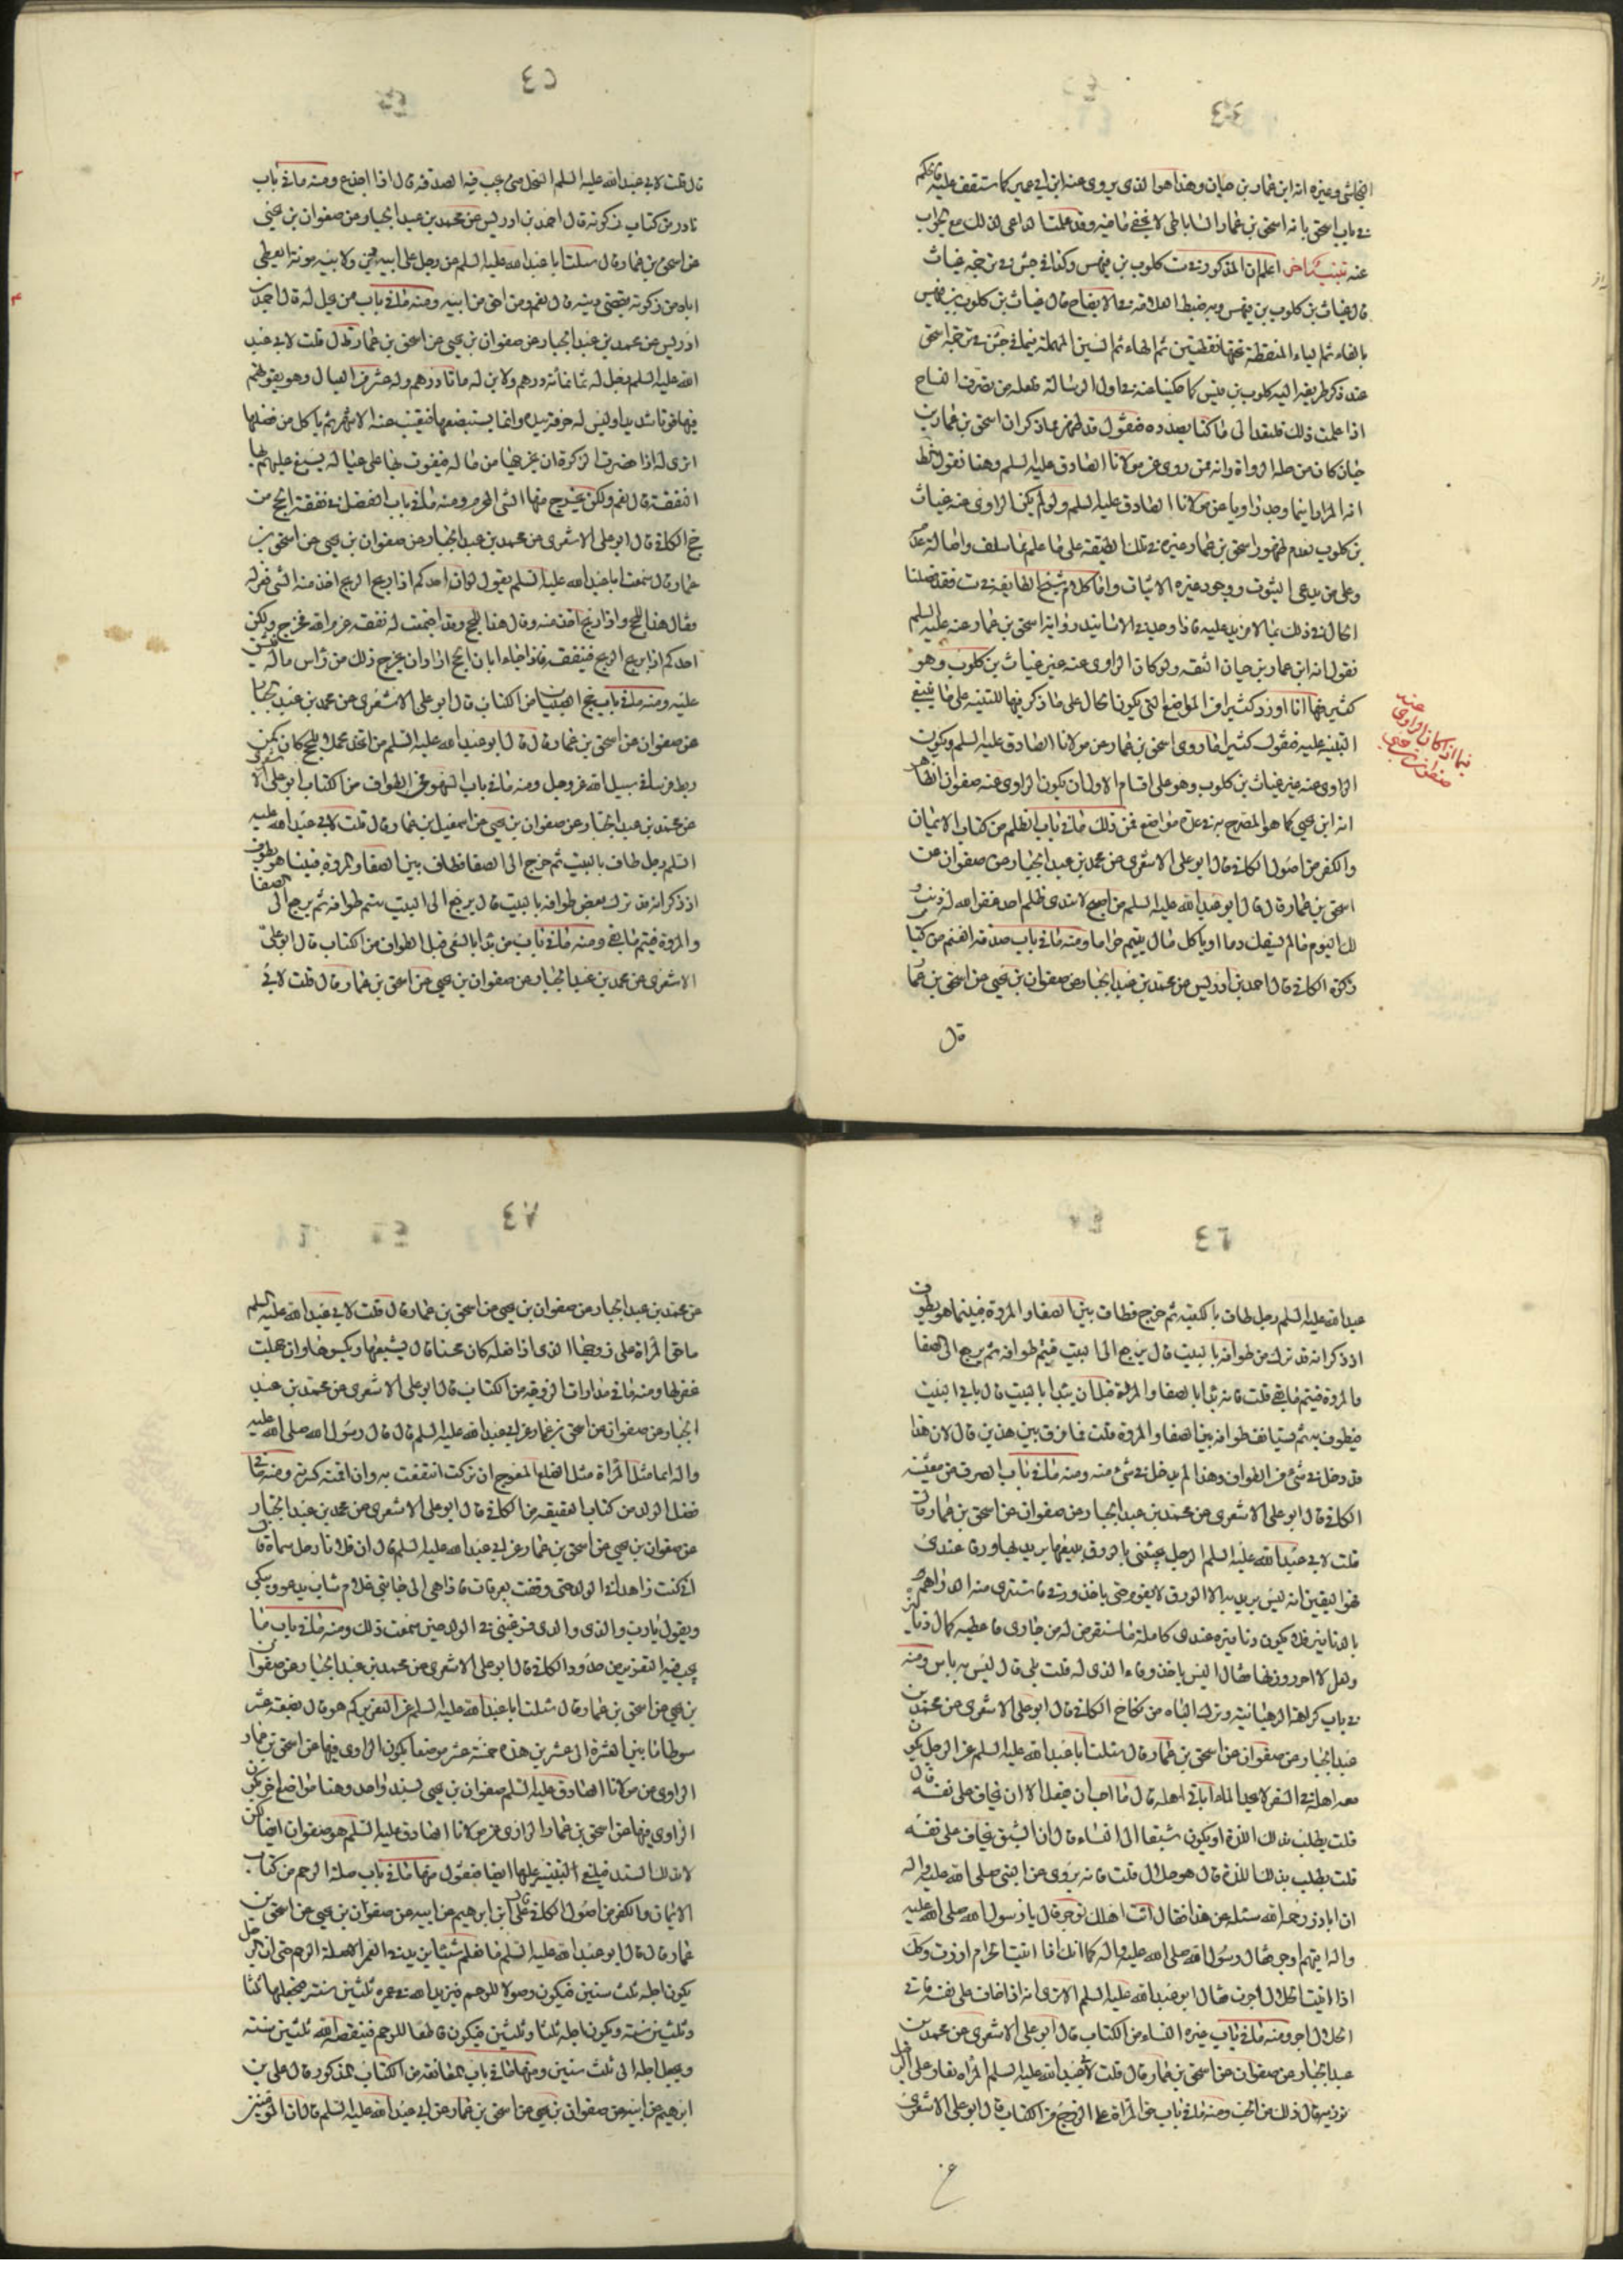 النجاشي وغيره انه ابن عمار بن حيان وهذا هو الذي يروي عنه ابن ابي عمير كما ستقف عليه
في باب اسحق بانه اسحق بن عمار الساباطي لا يخفى ما فيه وقد علمت الداعي لذلك مع الجواب
عنه تنبيه اخر اعلم ان المذكور في ست كلوب بن فيهس وكذا في جش في ترجمة غياث
قال غياث بن كلوب بن فيهس وبه ضبط العلامة في الايضاح قال غياث بن كلوب بن فيهس
بالفاء ثم الياء المنقطة تحتها نقطتين ثم الهاء ثم السين المهملة فيما في جش في ترجمة اسحق
عند ذكر طريقه اليه كلوب بن قيس كما حكينا عنه في اول الرسالة فلعله من تصرف النساخ
اذا علمت ذلك فلنعد الى ما كنا بصدده فنقول قد ظهر مما ذكر ان اسحق بن عمار بن
حيان كان من جملة الرواة وانه ممن روى عن مولانا الصادق عليه السلم وهنا نقول
انه المراد اينما وجد راويا عن مولانا الصادق عليه السلم ولو لم يكن الراوي عنه غياث
بن كلوب لعدم ظهور اسحق بن عمار غيره في تلك الطبقة على ما علم مما سلف واصالة
وعلى من يدعي الثبوت ووجود غيره الاثبات واما كلام شيخ الطايفة في ست فقد فصلنا
الحال في ذلك بما لا مزيد عليه فاذا وجد في الاسانيد رواية اسحق بن عمار عنه عليه السلم
فقول انه ابن عمار بن حيان الثقة ولو كان الراوي عنه غير غياث بن كلوب وهو
كثير فها انا اورد كثيرا من المواضع التي يكون الحال على ما ذكر فيها للتنبيه على ما ينبغي
التنبيه عليه فنقول كثيرا ما روى اسحق بن عمار عن مولانا الصادق عليه السلم ويكون
الراوي عنه غير غياث بن كلوب وهو على اقسام الاول ان يكون الراوي عنه صفوان الظاهر
انه ابن يحيى كما هو المصرح به في عدة مواضع فمن ذلك ما في باب الظلم من كتاب الايمان
والكفر من اصول الكافي قال ابو علي الاشعري عن محمد بن عبد الجبار عن صفوان عن
اسحق بن عمار قال قال ابو عبد الله عليه السلم من اصبح لا ينوي ظلم احد غفر الله له ذنب
ذلك اليوم ما لم يسفك دما او ياكل مال يتيم حراما ومنه ما في باب صدقة الغنم من كتاب
زكوة الكافي قال احمد بن ادريس عن محمد بن عبد الجبار عن صفوان بن يحيى عن اسحق بن عمار
قال
فيما اذا كان الراوي عنه
صفوان بن يحيى
قال قلت لابي عبد الله عليه السلم السخل متى يجب فيه الصدقة قال اذا اجذع ومنه ما في باب
نادر من كتاب زكوته قال احمد بن ادريس عن محمد بن عبد الجبار عن صفوان بن يحيى
عن اسحق بن عمار قال سئلت ابا عبد الله عليه السلم عن رجل على ابيه دين ولابيه مؤنة ايعطي
اباه من زكوته يقضي دينه قال نعم ومن احق من ابيه ومنه ما في باب من يحل له قال احمد بن
ادريس عن محمد بن عبد الجبار عن صفوان بن يحيى عن اسحق بن عمار قال قلت لابي عبد
الله عليه السلم رجل له ثمانمائة درهم ولابن له مائتا درهم وله عشر من العيال وهو يقوتهم
فيها قوتا شديدا وليس له حرفة بيده وانما يستبضعها فتغيب عنه الاشهر ثم ياكل من فضلها
اترى له اذا حضرت الزكوة ان يخرجها من ماله فيعود بها على عياله يسبغ عليهم بها
النفقة قال نعم ولكن يخرج منها الشئ الدرهم ومنه ما في باب الفضل في نفقة الحج من
حج الكافي قال ابو علي الاشعري عن محمد بن عبد الجبار عن صفوان بن يحيى عن اسحق بن
عمار قال سمعت ابا عبد الله عليه السلم يقول لو ان احدكم اذا ربح الربح اخذ منه الشئ فعزله
فقال هذا للحج واذا ربح اخذ منه وقال هذا للحج وقد اجتمعت له نفقة عزم الله فخرج ولكن
احدكم اذا ربح الربح فينفقه فاذا جاء ابان الحج اراد ان يخرج ذلك من راس ماله فيشق
عليه ومنه ما في باب من الكتاب قال ابو علي الاشعري عن محمد بن عبد الجبار
عن صفوان عن اسحق بن عمار قال قال ابو عبد الله عليه السلم من اتخذ محملا للحج كان كمن
ربط فرسا في سبيل الله عز وجل ومنه ما في باب السهو في الطواف من الكتاب ابو علي الاشعري
عن محمد بن عبد الجبار عن صفوان بن يحيى عن اسمعيل بن عمار قال قلت لابي عبد الله عليه
السلم رجل طاف بالبيت ثم خرج الى الصفا فطاف بين الصفا والمروة فبينا هو يطوف
اذ ذكر انه قد ترك بعض طوافه بالبيت قال يرجع الى البيت يتم طوافه ثم يرجع الى الصفا
والمروة فيتم ما بقي ومنه ما في باب من بدا بالسعي قبل الطواف من الكتاب قال ابو علي
الاشعري عن محمد بن عبد الجبار عن صفوان بن يحيى عن اسحق بن عمار قال قلت لابي
عبد الله عليه السلم رجل طاف بالكعبة ثم خرج فطاف بين الصفا والمروة فبينما هو يطوف
اذ ذكر انه قد ترك من طوافه بالبيت قال يرجع الى البيت فيتم طوافه ثم يرجع الى الصفا
والمروة فيتم ما بقي قلت فانه بدا بالصفا والمروة قبل ان يبدا بالبيت قال ياتي البيت
فيطوف به ثم يستانف طوافه بين الصفا والمروة قلت فما فرق بين هذين قال لان هذا
قد دخل في شئ من الطواف وهذا لم يدخل في شئ منه ومنه ما في باب الصرف من معيشة
الكافي قال ابو علي الاشعري عن محمد بن عبد الجبار عن صفوان عن اسحق بن عمار قال
قلت لابي عبد الله عليه السلم الرجل يجيئني بالورق يبيعها يريد بها ورقا عندي
فهو اليقين انه ليس يريد الا الورق لا يقوم حتى ياخذ ورقي فاشتري منه الدراهم
بالدنانير فلا يكون دنانيره عندي كاملة فاستقرض له من جاري فاعطيه كمال دنانيره
ولعلي لا احرز وزنها فقال اليس ياخذ وفاء الذي له قلت بلى قال ليس به باس ومنه
في باب كراهة الرهبانية وترك الباه من نكاح الكافي قال ابو علي الاشعري عن محمد بن
عبد الجبار عن صفوان عن اسحق بن عمار قال سئلت ابا عبد الله عليه السلم عن الرجل يكون
معه اهله في السفر لا يجد الماء اياتي اهله قال ما احب ان يفعل الا ان يخاف على نفسه قال
قلت يطلب بذلك اللذة او يكون شبقا الى النساء قال ان الشبق يخاف على نفسه
قلت يطلب بذلك اللذة قال هو حلال قلت فانه يروى عن النبي صلى الله عليه واله
ان اباذر رحمه الله سئله عن هذا فقال ائت اهلك تؤجر قال يا رسول الله صلى الله عليه
واله اتيهم اوجر فقال رسول الله صلى الله عليه واله كما انك اذا اتيت الحرام ازرت وكذلك
اذا اتيت الحلال اجرت فقال ابو عبد الله عليه السلم الا ترى انه اذا خاف على نفسه فاتى
الحلال اجر ومنه ما في باب غيرة النساء من الكتاب قال ابو علي الاشعري عن محمد بن
عبد الجبار عن صفوان عن اسحق بن عمار قال قلت لابي عبد الله عليه السلم المراة تغار على الرجل
تؤذيه قال ذلك من الحب ومنه ما في باب حق المراة على الزوج من الكتاب قال ابو علي الاشعري
عن
عن محمد بن عبد الجبار عن صفوان بن يحيى عن اسحق بن عمار قال قلت لابي عبد الله عليه السلم
ما حق المراة على زوجها الذي اذا فعله كان محسنا قال يشبعها ويكسوها وان جهلت
غفر لها ومنه ما في مداراة الزوجة من الكتاب قال ابو علي الاشعري عن محمد بن عبد
الجبار عن صفوان عن اسحق بن عمار عن ابي عبد الله عليه السلم قال قال رسول الله صلى الله عليه
واله انما مثل المراة مثل الضلع المعوج ان تركته انتفعت به وان اقمته كسرته ومنه ما في
فضل الولد من كتاب العقيقة من الكافي قال ابو علي الاشعري عن محمد بن عبد الجبار
عن صفوان بن يحيى عن اسحق بن عمار عن ابي عبد الله عليه السلم قال ان فلانا رجل سماه قال
اني كنت زاهدا في الولد حتى وقفت بعرفات فاذا الى جانبي غلام شاب يدعو ويبكي
ويقول يا رب والدي والدي فرغبني في الولد حين سمعت ذلك ومنه ما في باب ما
يجب فيه التعزير من حدود الكافي قال ابو علي الاشعري عن محمد بن عبد الجبار عن صفوان
بن يحيى عن اسحق بن عمار قال سئلت ابا عبد الله عليه السلم عن التعزير كم هو قال بضعة عشر
سوطا ما بين العشرة الى عشرين هذه خمسة عشر موضعا يكون الراوي فيها عن اسحق بن عمار
الراوي عن مولانا الصادق عليه السلم صفوان بن يحيى بسند واحد وهنا مواضع اخر يكون
الراوي فيها عن اسحق بن عمار الراوي عن مولانا الصادق عليه السلم هو صفوان ايضا لكن
لا بذلك السند فينبغي التنبيه عليها ايضا فنقول منها ما في باب صلة الرحم من كتاب
الايمان والكفر من اصول الكافي علي ابن ابرهيم عن ابيه عن صفوان بن يحيى عن اسحق بن
عمار قال قال ابو عبد الله عليه السلم ما نعلم شيئا يزيد في العمر الا صلة الرحم حتى ان الرجل
يكون اجله ثلث سنين فيكون وصولا للرحم فيزيد الله في عمره ثلثين سنة فيجعلها ثلثا
وثلثين سنة ويكون اجله ثلثا وثلثين فيكون قاطعا للرحم فينقصه الله ثلثين سنة
ويجعل اجله الى ثلث سنين ومنها ما في باب المعانقة من الكتاب المذكور قال علي بن
ابرهيم عن ابيه عن صفوان بن يحيى عن اسحق بن عمار عن ابي عبد الله عليه السلم قال ان المؤمنين